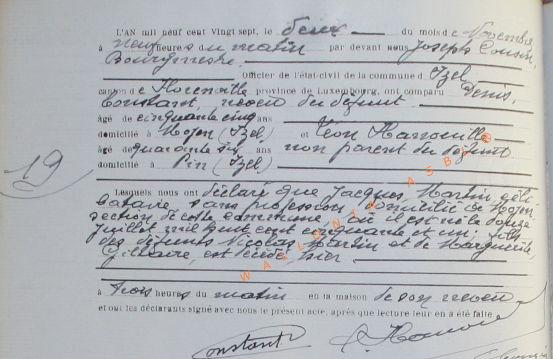 L'AN mil neuf cent vingt sept, le deux du mois de Novembre
à neuf heures du matin par devant nous Joseph Cousin,
Bourgmestre.
Officier de l'état civil de la commune d'Izel,
canton de Florenville province de Luxembourg, ont comparu Denis,
Constant, neveu du défunt
âgé de cinquante cinq ans
domicilié à Moyen (Izel) et Léon
âgé de quarante six ans non parent du défunt
domicilié à Pin (Izel)
19
Lesquels nous ont déclaré que Jacques Martin céli-
bataire, sans profession, domicilié à Moyen,
section de cette commune, où il est né le douze
juillet mil huit cent cinquante et un, fils
des défunts Nicolas Martin et de Marguerite
Gillaire, est décédé hier
à trois heures du matin en la maison de son neveu
et ont les déclarants signé avec nous le présent acte, après que lecture leur en a été faite.
Constant
WALLONIA ASBL